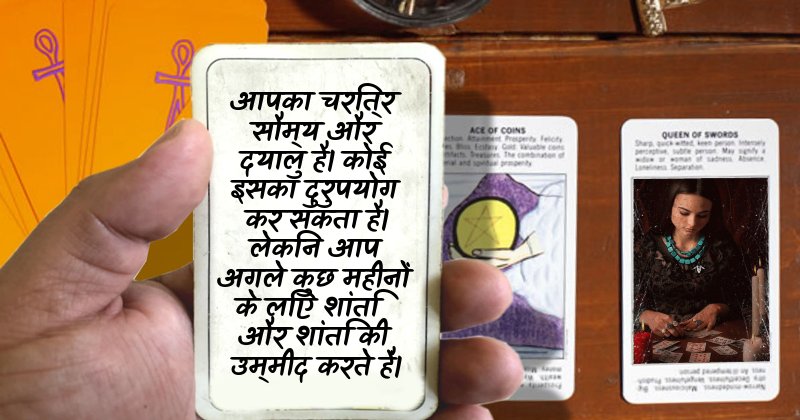 आपका चरित्र
सौम्य और
दयालु है। कोई
इसका दुरुपयोग
कर सकता है।
लेकिन आप
अगले कुछ महीनों
के लिए शांति
और शांति की
उम्मीद करते हैं।
ACE OF COINS
Attainment. Prosperity. Felicity.
Bliss. Ecstasy. Gold. Valuable coins
Treasures. The combination of
and spiritual prosperity.
QUEEN OF SWORDS
Sharp, quick-witted, keen person. Intensely
perceptive, subtle person. May signify a
widow or woman of sadness. Absence.
Loneliness. Separation.